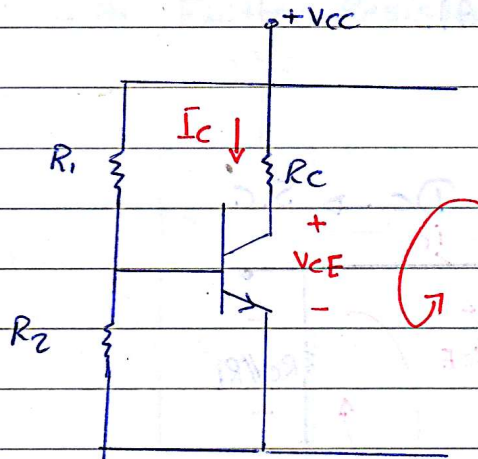 +VCC
IC
R1
RC
+
VCE
-
R2